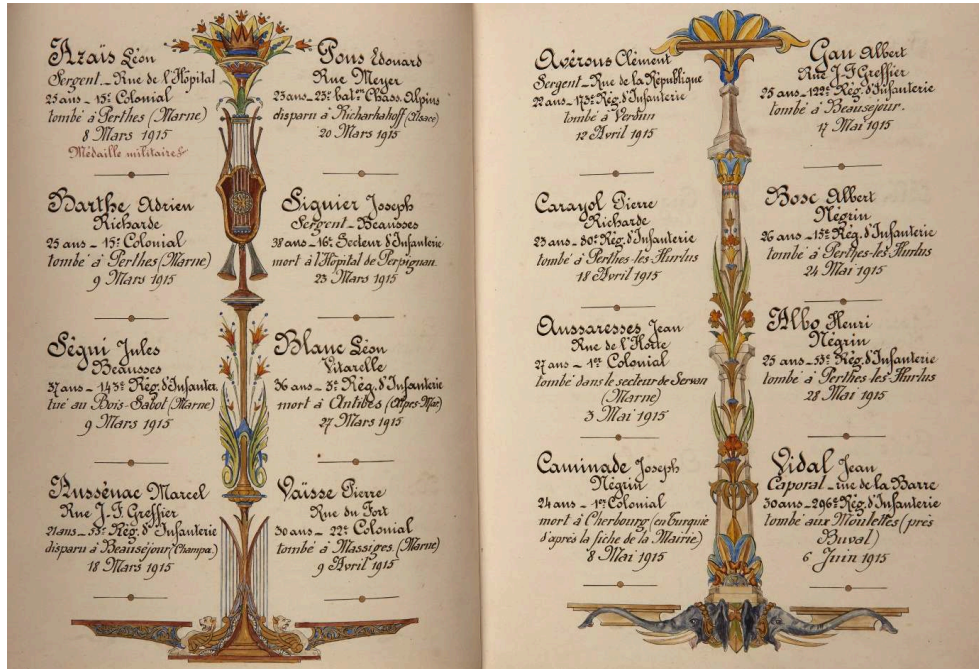 Azaïs Léon
Sergent _ Rue de l'Hôpital
25 ans _ 15e Colonial
tombé à Perthes (Marne)
8 Mars 1915
Médaille militaire
Barthe Adrien
Richarde
25 ans _ 15e Colonial
tombé à Perthes (Marne)
9 Mars 1915
Ségui Jules
Beausses
37 ans _ 143e Rég. d'Infanter.
tué au Bois-Sabot (Marne)
9 Mars 1915
Aussénac Marcel
Rue J. F Greffier
21 ans _ 53e Rég. d'Infanterie
disparu à Beauséjour (Champa.)
18 Mars 1915
Pons Edouard
Rue Meyer
23 ans _ 23e baton Chass. Alpins
disparu à Richarhahoff (Alsace)
20 Mars 1915
Siguier Joseph
Sergent _ Beausses
38 ans _ 16e Secteur d'Infanterie
mort à l'Hôpital de Perpignan
23 Mars 1915
Blanc Léon
Vitarelle
36 ans _ 3e Rég. d'Infanterie
mort à Antibes (Alpes-Mmes)
27 Mars 1915
Vaïsse Pierre
Rue du Fort
30 ans _ 22e Colonial
tombé à Massiges (Marne)
9 Avril 1915
Avérous Clément
Sergent _ Rue de la République
22 ans _ 173e Rég. d'Infanterie
tombé à Verdun
12 Avril 1915
Carayol Pierre
Richarde
23 ans _ 80e Rég. d'Infanterie
tombé à Perthes-les-Hurlus
18 Avril 1915
Aussaresses Jean
Rue de l'Horte
27 ans _ 1er Colonial
tombé dans le secteur de Servan
(Marne)
3 Mai 1915
Caminade Joseph
Négrin
24 ans _ 1er Colonial
mort à Cherbourg (en Turquie
d'après la fiche de la Mairie)
8 Mai 1915
Gau Albert
Rue J. F Greffier
25 ans _ 122e Rég. d'Infanterie
tombé à Beauséjour.
17 Mai 1915
Bosc Albert
Négrin
26 ans _ 15e Rég. d'Infanterie
tombé à Perthes-les-Hurlus
24 Mai 1915
Albo Henri
Négrin
25 ans _ 53e Rég. d'Infanterie
tombé à Perthes-les-Hurlus
28 Mai 1915
Vidal Jean
Caporal _ rue de la Barre
30 ans _ 296e Rég. d'Infanterie
tombé aux Moutelles (près
Buval)
6 Juin 1915